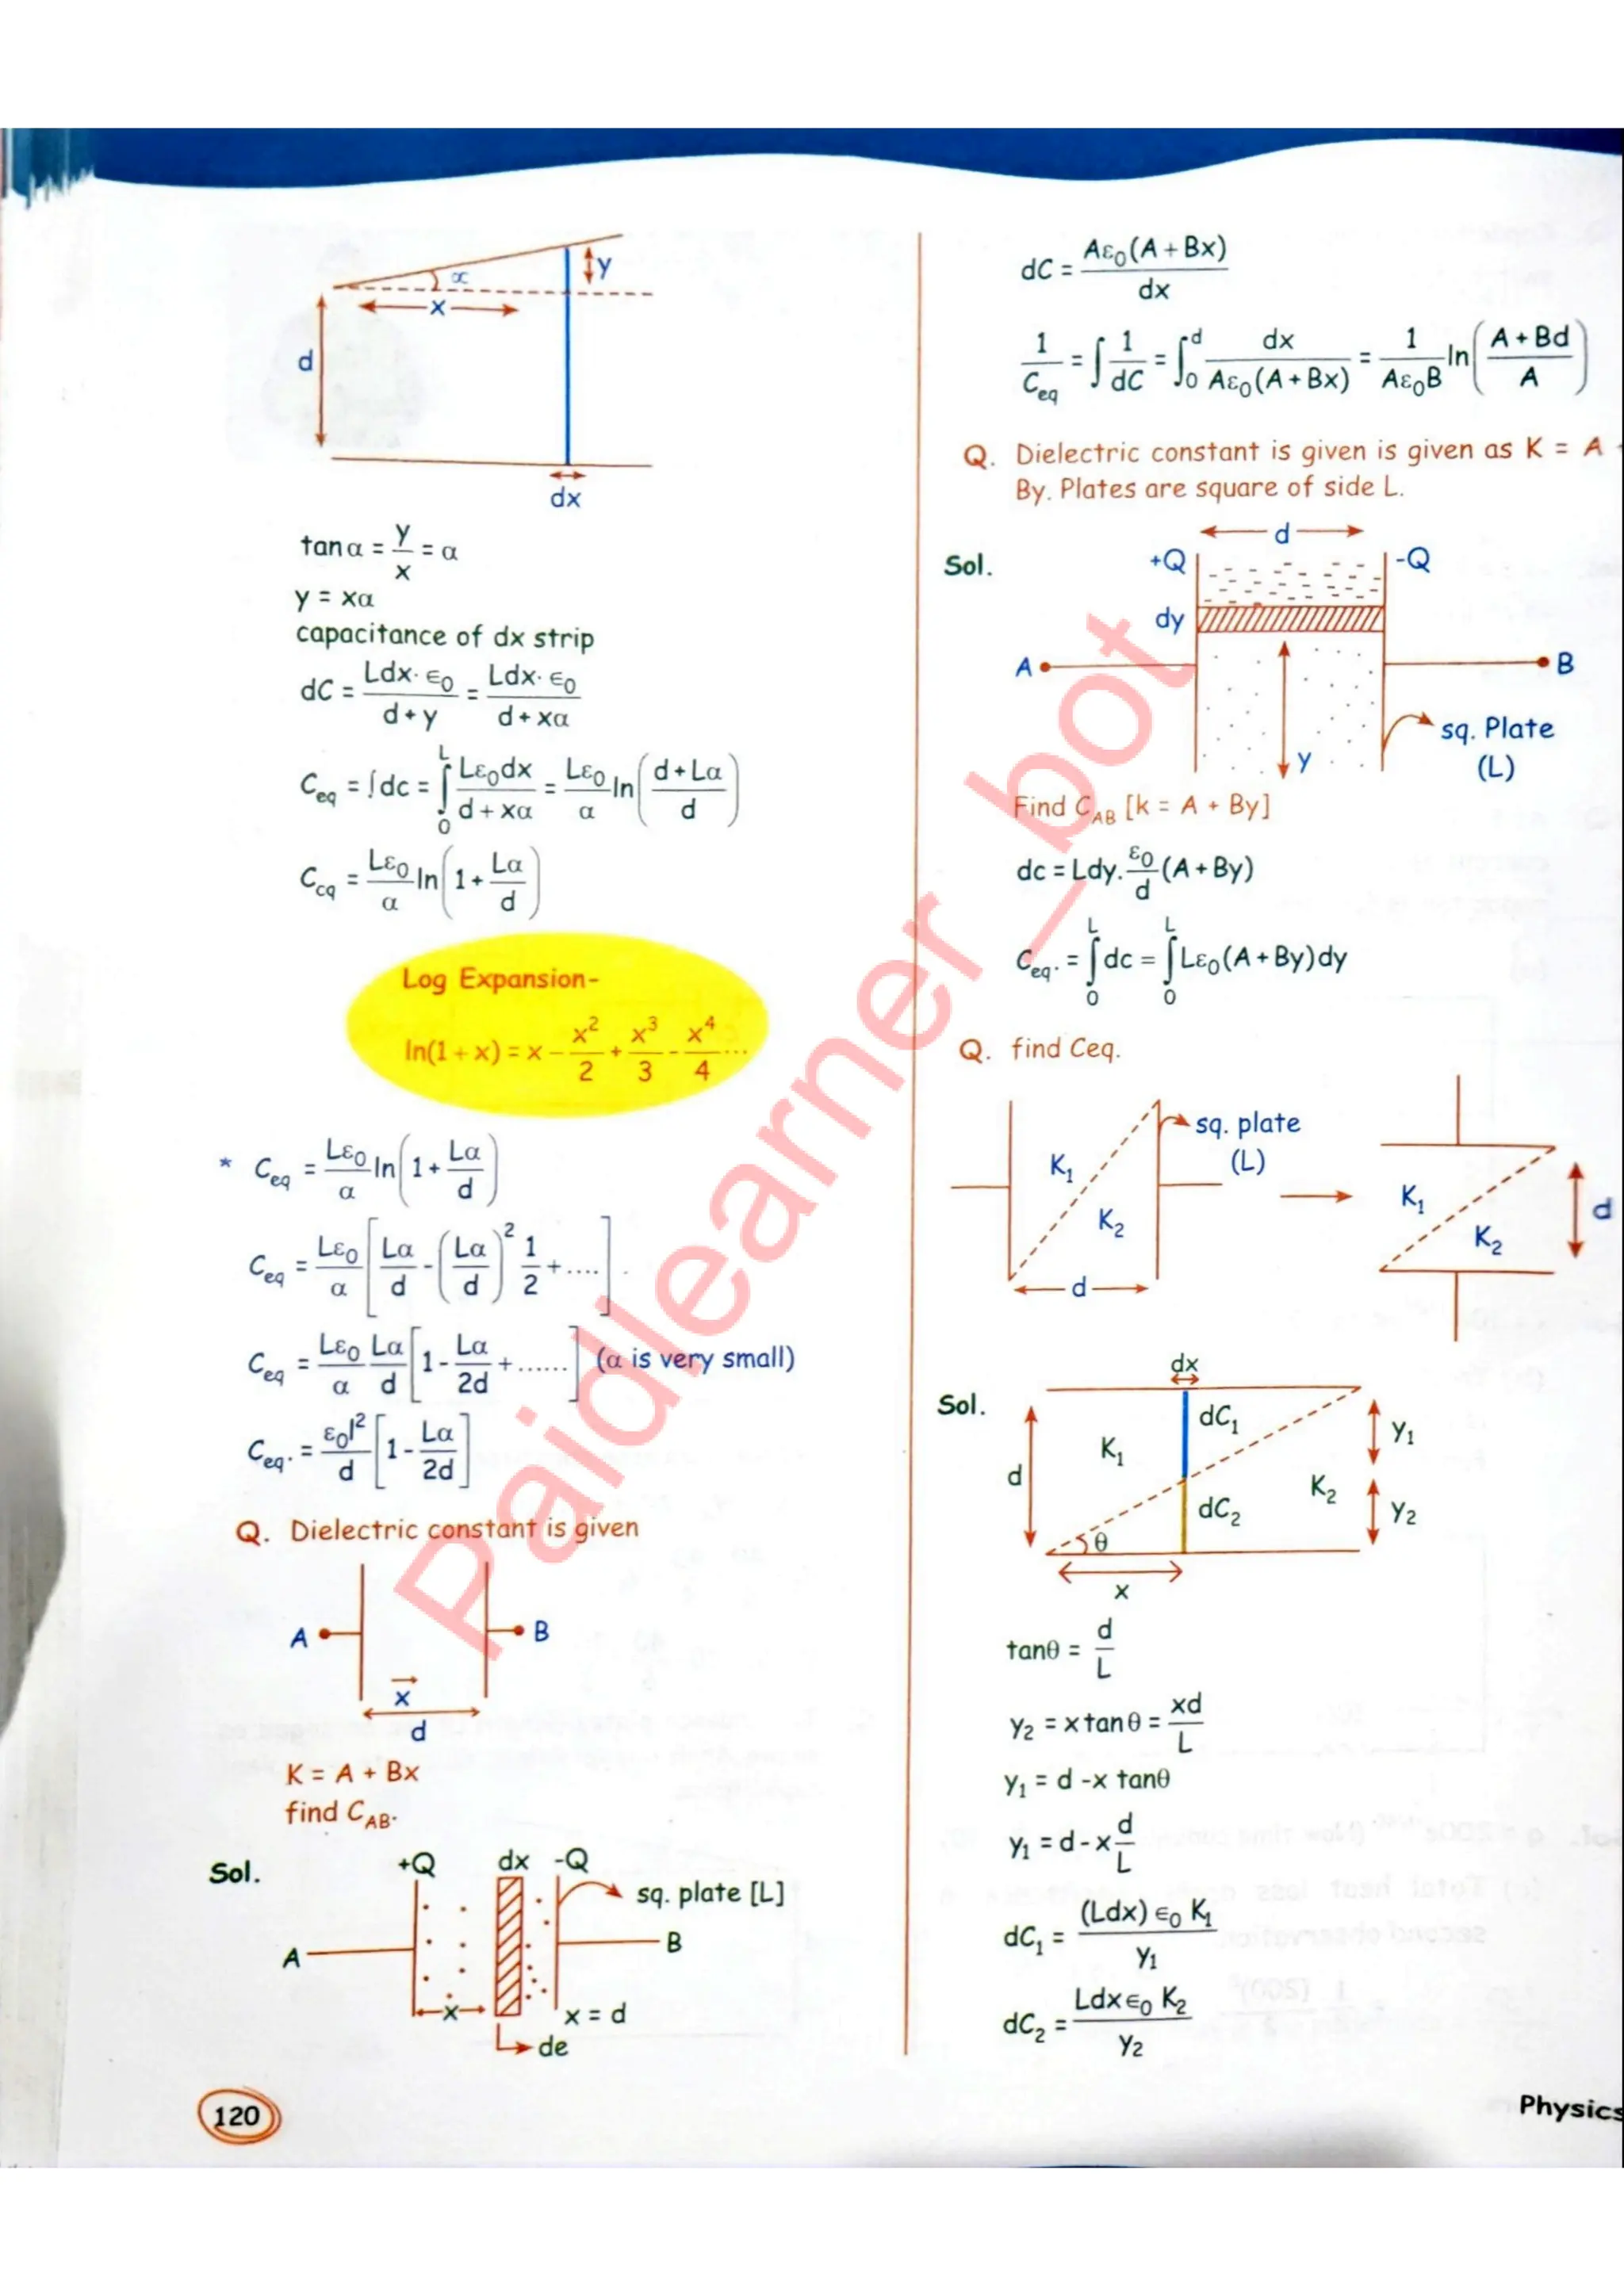 α
y
x
d
dx
tan α = y/x = α
y = xα
capacitance of dx strip
dC = Ldx· ∈0 / d + y = Ldx· ∈0 / d + xα
Ceq = ∫dc = ∫₀ᴸ Lε0dx / d + xα = Lε0/α ln(d + Lα / d)
Ccq = Lε0/α ln(1 + Lα/d)
Log Expansion-
ln(1 + x) = x - x²/2 + x³/3 - x⁴/4 ...
* Ceq = Lε0/α ln(1 + Lα/d)
Ceq = Lε0/α [Lα/d - (Lα/d)² 1/2 + ....]
Ceq = Lε0/α Lα/d [1 - Lα/2d + ......] (α is very small)
Ceq. = ε0l²/d [1 - Lα/2d]
Q. Dielectric constant is given
A
B
x
d
K = A + Bx
find CAB.
Sol.
+Q dx -Q
sq. plate [L]
A
B
x
x = d
de
120
dC = Aε0(A + Bx) / dx
1/Ceq = ∫ 1/dC = ∫₀ᵈ dx / Aε0(A + Bx) = 1/Aε0B ln(A + Bd / A)
Q. Dielectric constant is given is given as K = A
By. Plates are square of side L.
Sol.
d
+Q -Q
dy
A
B
sq. Plate
(L)
y
Find CAB [k = A + By]
dc = Ldy. ε0/d (A + By)
Ceq. = ∫₀ᴸ dc = ∫₀ᴸ Lε0(A + By)dy
Q. find Ceq.
sq. plate
(L)
K1
K2
d
K1
K2
d
Sol.
dx
dC1
K1
y1
d
K2
dC2
y2
θ
x
tanθ = d/L
y2 = x tan θ = xd/L
y1 = d -x tanθ
y1 = d - x d/L
dC1 = (Ldx) ∈0 K1 / y1
dC2 = Ldx∈0 K2 / y2
Physics
Paidlearner_bot